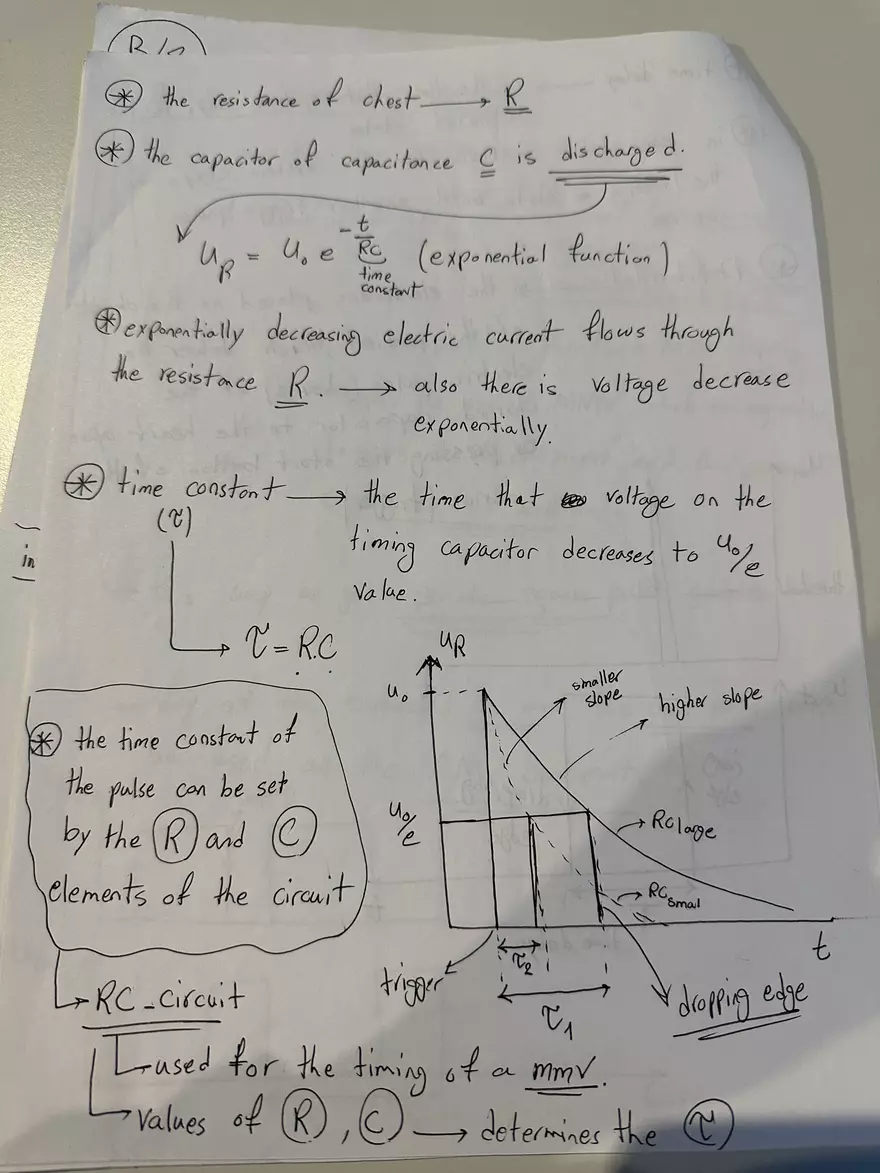 R
* the resistance of chest → R
* the capacitor of capacitance C is discharged.
U_R = U₀ e^(-t/RC) (exponential function)
time
constant
* exponentially decreasing electric current flows through
the resistance R. → also there is voltage decrease
exponentially.
* time constant → the time that voltage on the
(τ)
timing capacitor decreases to U₀/e
value.
in
τ = R.C
U_R
U₀
smaller
slope
higher slope
* the time constant of
the pulse can be set
by the R and C
elements of the circuit
U₀/e
RC large
RC smal
t
τ₂
trigger
τ₁
dropping edge
RC-circuit
used for the timing of a mmv.
values of R, C → determines the τ